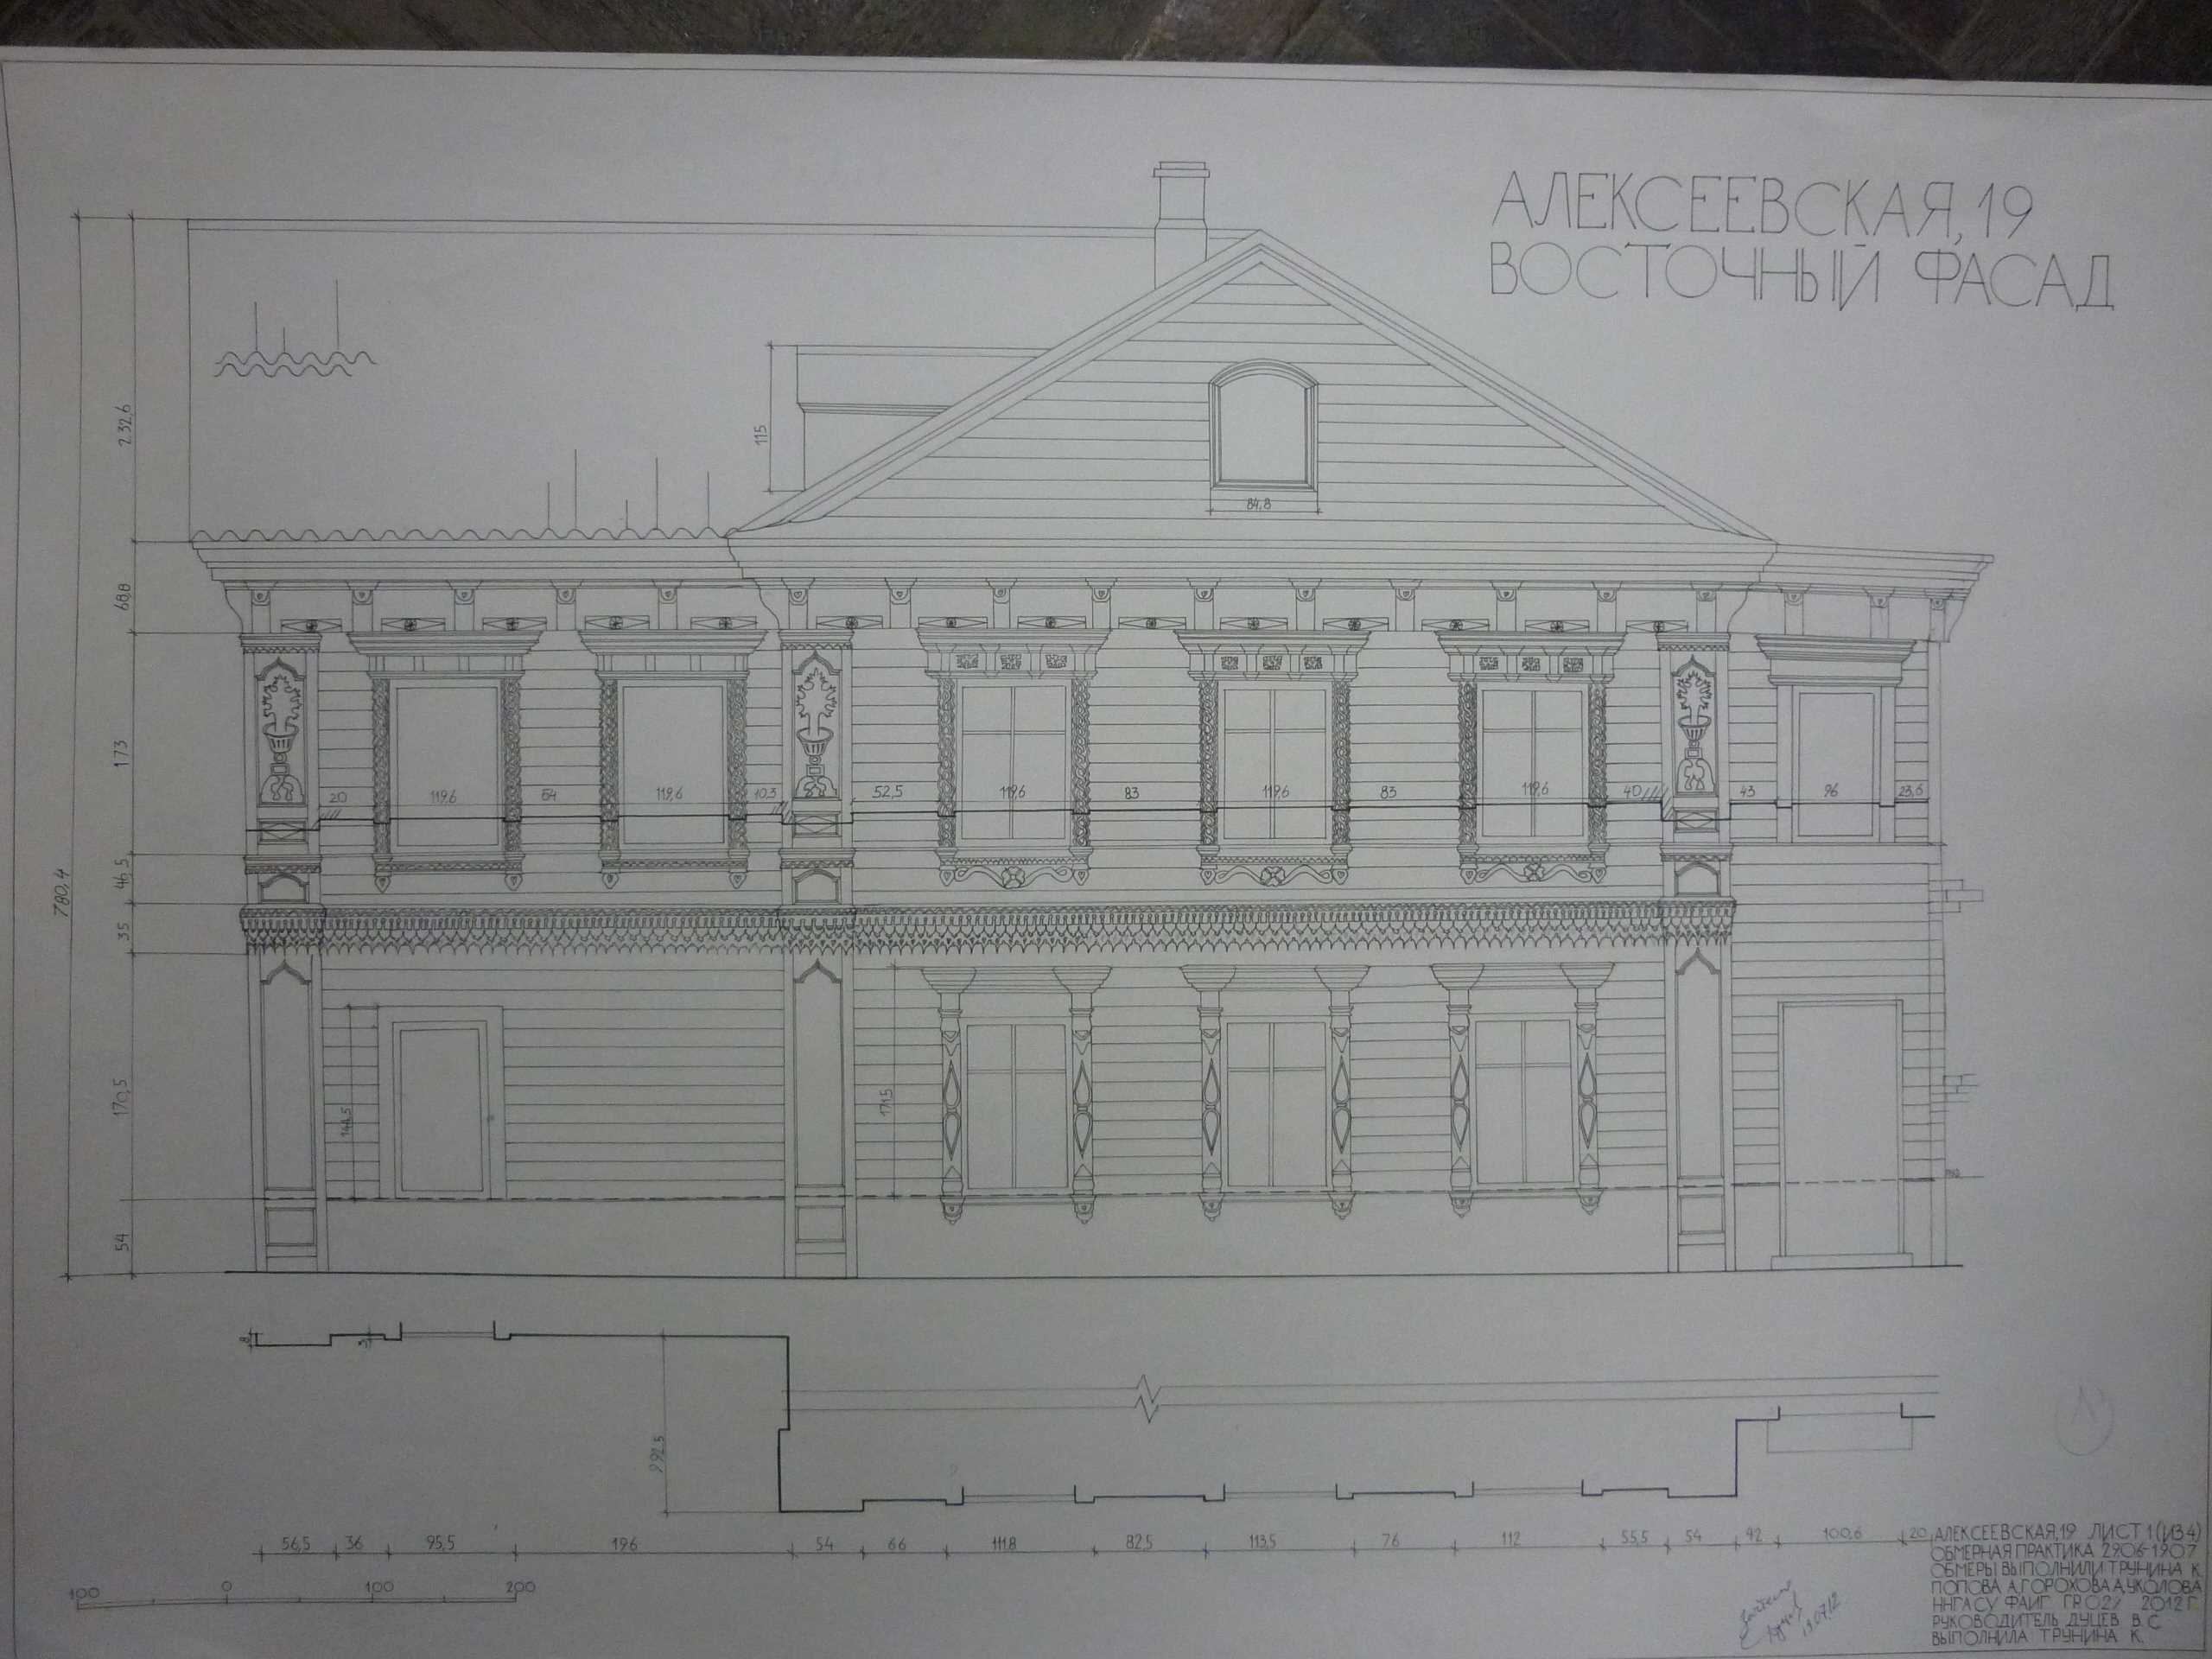 АЛЕКСЕЕВСКАЯ, 19
ВОСТОЧНЫЙ ФАСАД
232,6
115
84,8
68,8
173
20
119,6
64
119,6
10,3
52,5
119,6
83
119,6
83
119,6
40
43
96
23,6
46,5
780,4
35
170,5
146,5
171,5
54
8
3
992,5
56,5 36 95,5 196 54 66 111,8 82,5 113,5 76 112 55,5 54 42 100,6 20
100 0 100 200
АЛЕКСЕЕВСКАЯ, 19 ЛИСТ 1 (ИЗ 4)
ОБМЕРНАЯ ПРАКТИКА 29.06-19.07
ОБМЕРЫ ВЫПОЛНИЛИ ТРУНИНА К.
ПОПОВА А, ГОРОХОВА А, УКОЛОВА
ННГАСУ ФАИГ ГР.02/ 2012 Г.
РУКОВОДИТЕЛЬ ДУЦЕВ В. С
ВЫПОЛНИЛА ТРУНИНА К.
13.07.12